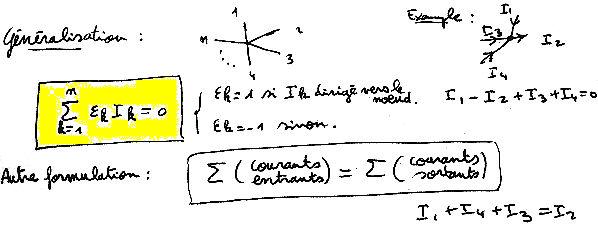 Généralisation :
1
2
3
4
n
Exemple :
I₁
I₂
I₃
I₄
n
∑ εk Ik = 0
k=1
εk=1 si Ik dirigé vers le noeud.
εk=-1 sinon.
I₁ - I₂ + I₃ + I₄ = 0
Autre formulation :
∑ (courants entrants) = ∑ (courants sortants)
I₁ + I₄ + I₃ = I₂